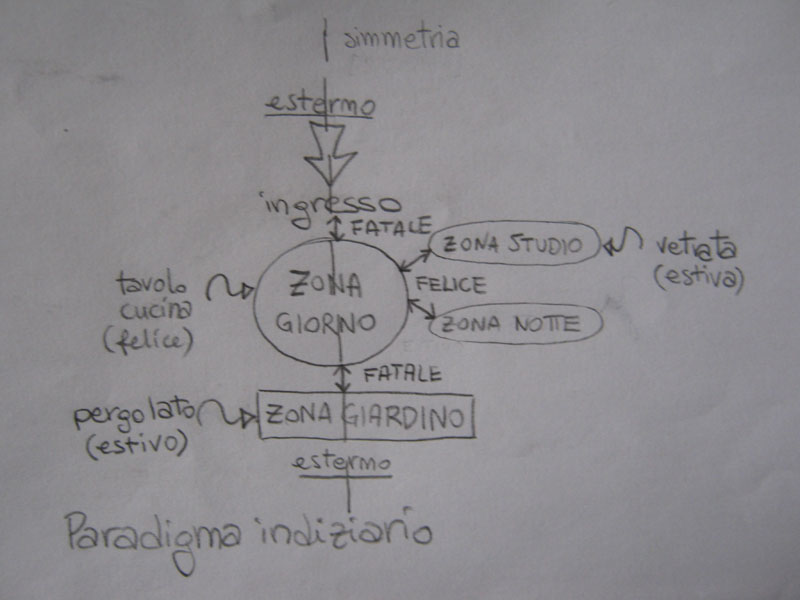 simmetria
estermo
ingresso
FATALE
ZONA STUDIO
vetrata
(estiva)
tavolo
cucina
(felice)
ZONA
GIORNO
FELICE
ZONA NOTTE
FATALE
pergolato
(estivo)
ZONA GIARDINO
estermo
Paradigma indiziario